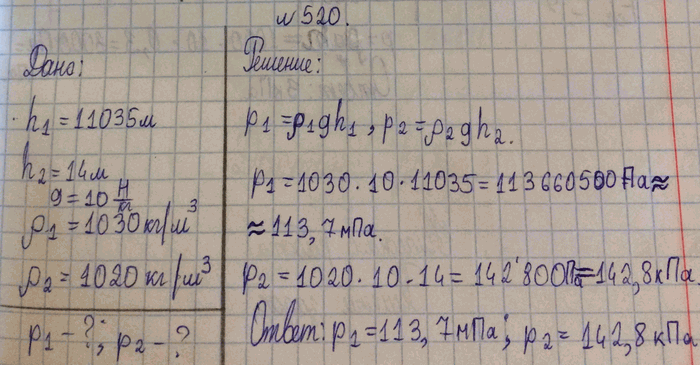 №520.
Дано:
h₁ = 11035м
h₂ = 14м
g = 10 Н/кг
ρ₁ = 1030 кг/м³
ρ₂ = 1020 кг/м³
p₁ - ?; p₂ - ?
Решение:
p₁ = ρ₁gh₁, p₂ = ρ₂gh₂.
p₁ = 1030·10·11035 = 113660500 Па ≈
≈ 113,7 мПа.
p₂ = 1020·10·14 = 142'800Па = 142,8кПа.
Ответ: p₁ = 113,7мПа; p₂ = 142,8 кПа